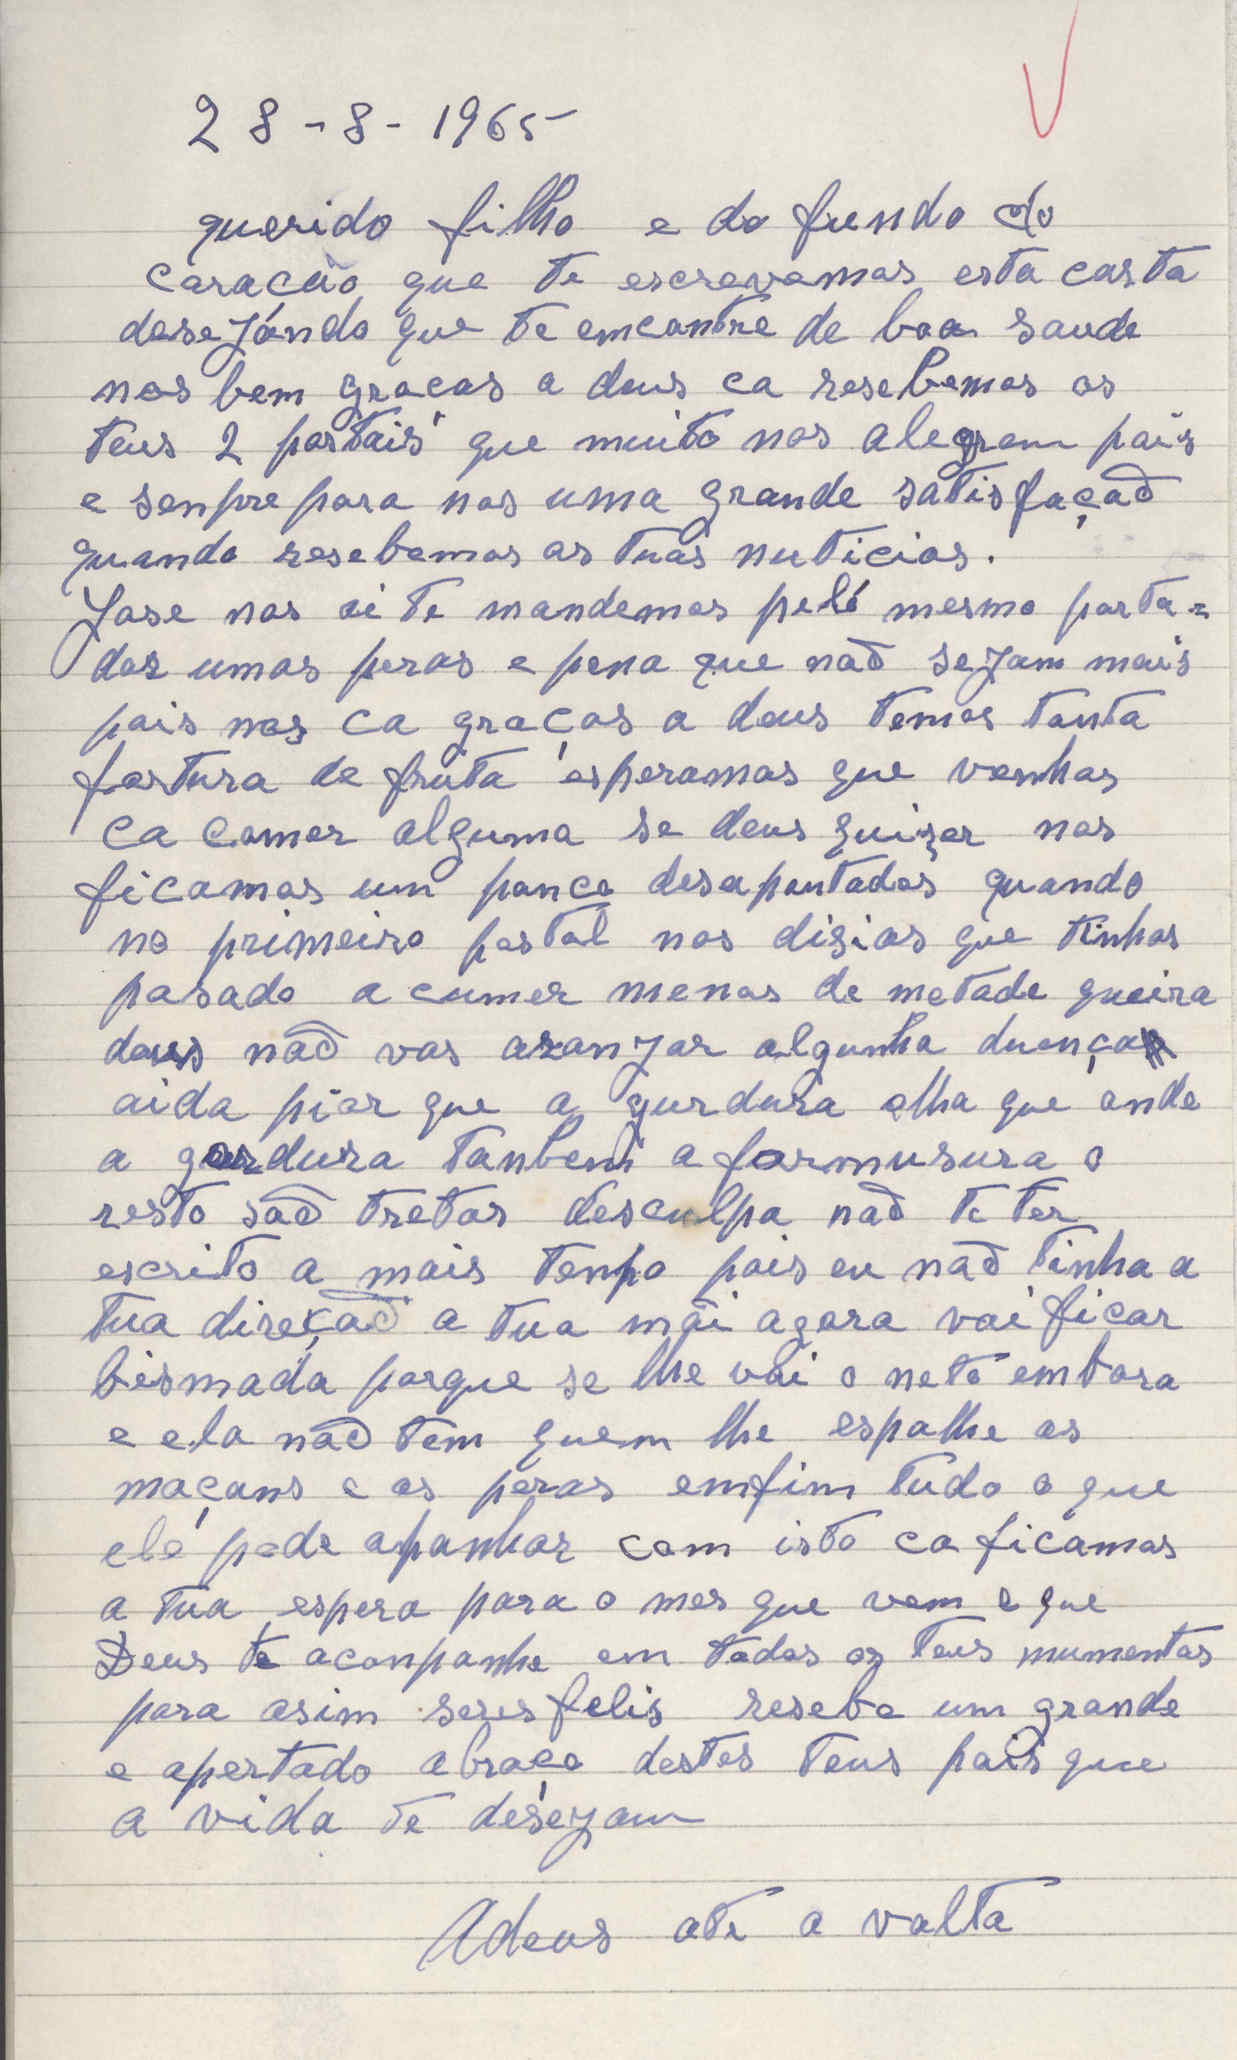 28-8-1965
querido filho e do fundo do
caracão que te escrevemos esta carta
desejando que te emcontre de boa saude
nos bem gracas a deus ca resebemos os
teus 2 postais que muito nos alegram pois
e senpre para nos uma grande satisfação
quando resebemos as tuas nuticias.
Jose nos ai te mandemos pelo mesmo porta=
dor umas peras e pena que não sejam mais
pois nos ca graças a deus temos tanta
fartura de fruta esperamos que venhas
ca comer alguma se deus quizer nos
ficamos um ponco desapontados quando
no primeiro postal nos disias que tinhas
pasado a cumer menos de metade queira
deus não vas aranjar algunha duença
aida pior que a gurdura olha que onde
a gordura tanbem a formusura o
resto são tretas desculpa não te ter
escrito a mais tenpo pois eu não tinha a
tua direção a tua mãi agora vai ficar
bismada porque se lhe vai o neto embora
e ela não tem quem lhe espalhe as
maçans e as peras emfim tudo o que
ele pode apanhar com isto ca ficamos
a tua espera para o mes que vem e que
Deus te aconpanhe em todos os teus mumentos
para asim seres felis resebe um grande
e apertado abraço destes teus pais que
a vida te desejam
Adeus ate a volta